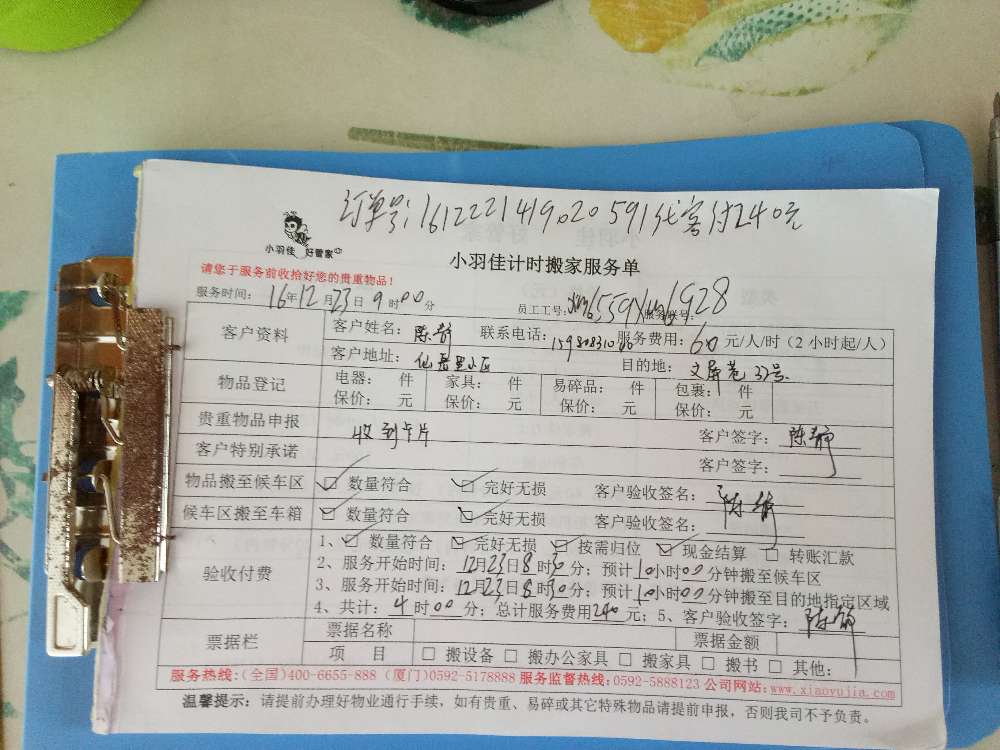 订单号:1612221419020591代客付240元
小羽佳 好管家
小羽佳计时搬家服务单
请您于服务前收拾好您的贵重物品!
服务时间: 16年12月23日9时00分 员工工号: xm6559 xm6928
客户资料 客户姓名: 陈静 联系电话: 服务费用: 60元/人/时(2小时起/人)
客户地址: 仙岳里小区 目的地: 文屏巷33号
物品登记 电器: 件 家具: 件 易碎品: 件 包裹: 件
保价: 元 保价: 元 保价: 元 保价: 元
贵重物品申报 收到卡片 客户签字: 陈静
客户特别承诺 客户签字:
物品搬至候车区 ☑ 数量符合 ☑ 完好无损 客户验收签名: 陈静
候车区搬至车箱 ☑ 数量符合 ☑ 完好无损 客户验收签名:
验收付费 1、☑ 数量符合 ☑ 完好无损 ☑ 按需归位 ☑ 现金结算 □ 转账汇款
2、服务开始时间: 12月23日8时30分; 预计10小时00分钟搬至候车区
3、服务开始时间: 12月23日8时30分; 预计10小时00分钟搬至目的地指定区域
4、共计: 4时00分; 总计服务费用240元; 5、客户验收签字: 陈静
票据栏 票据名称 票据金额
项 目 □ 搬设备 □ 搬办公家具 □ 搬家具 □ 搬书 □ 其他:
服务热线:(全国)400-6655-888 (厦门)0592-5178888 服务监督热线:0592-5888123 公司网站:www.xiaoyujia.com
温馨提示: 请提前办理好物业通行手续, 如有贵重、易碎或其它特殊物品请提前申报, 否则我司不予负责。